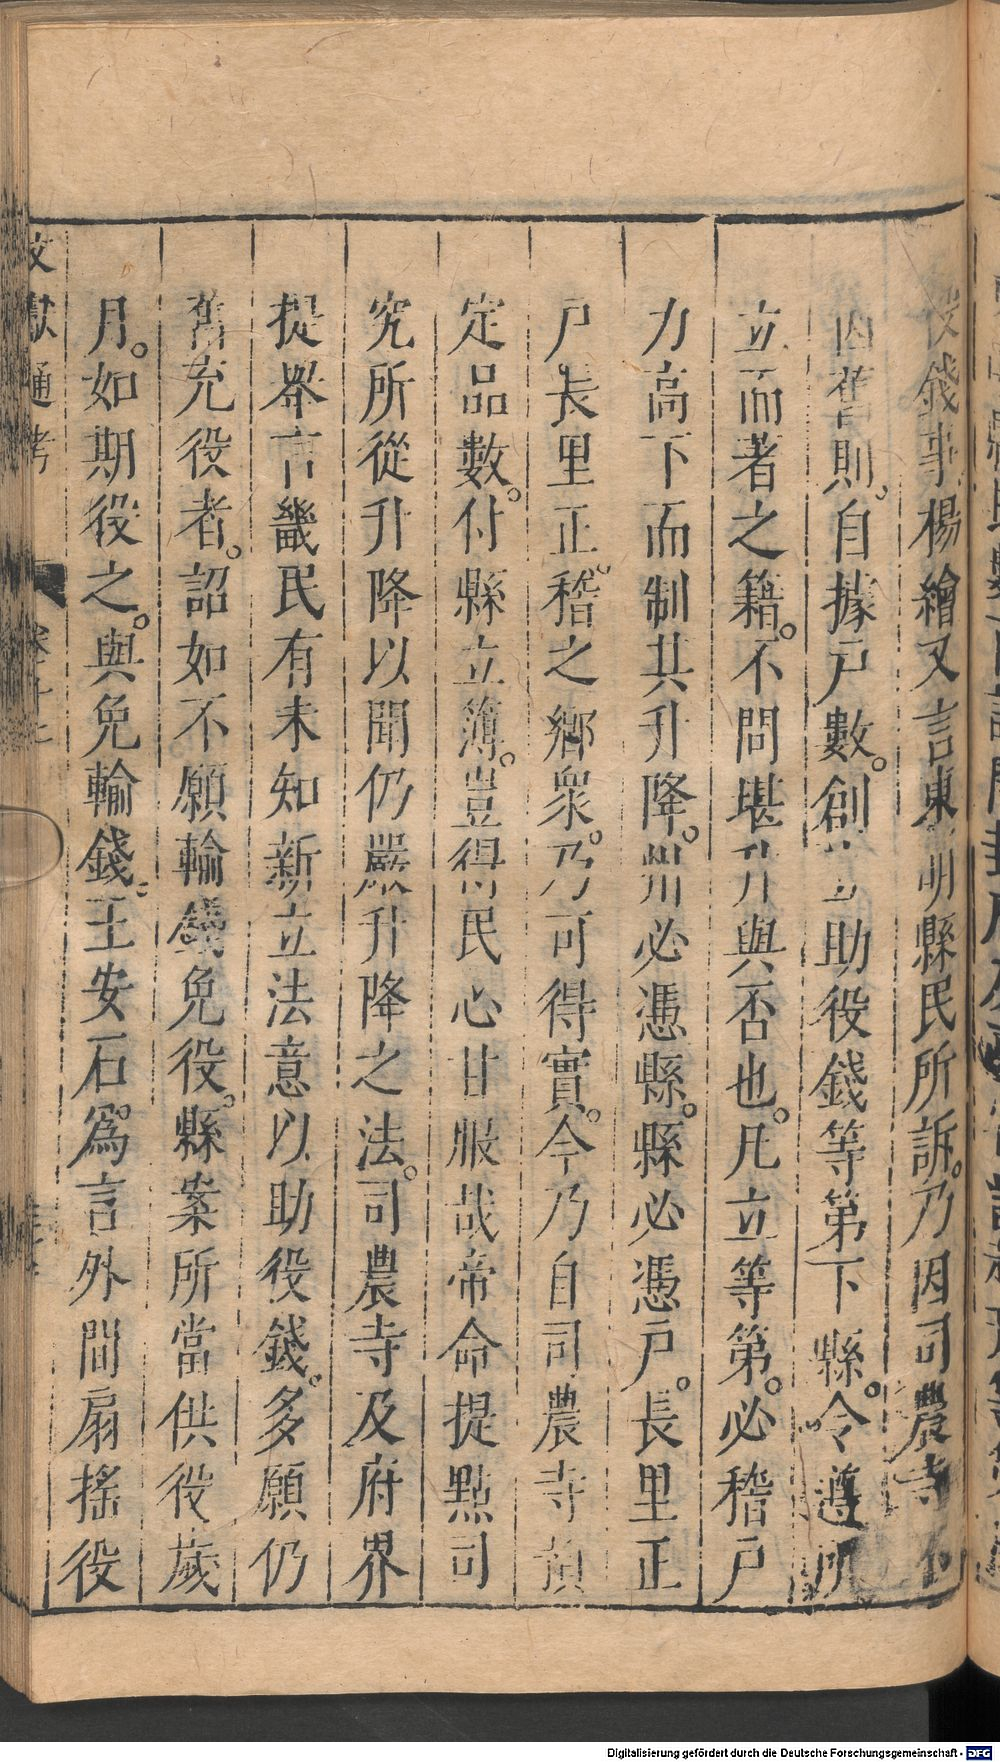 役錢事楊繪又言東明縣民所訴。乃因司農寺不
因舊則。自據戶數。創立助役錢等第下縣。令遵所
立而著之籍。不問堪升與否也。凡立等第。必稽戶
力高下而制其升降。州必憑縣。縣必憑戶。長里正
戶長里正。稽之鄉衆。乃可得實。今乃自司農寺預
定品數。付縣立簿。豈得民心甘服哉帝命提點司
究所從升降以聞仍嚴升降之法。司農寺及府界
提舉言畿民有未知新立法意以助役錢。多願仍
舊充役者。詔如不願輸錢免役。縣案所當供役歲
月。如期役之。與免輸錢。王安石爲言外間扇搖役
文獻通考
Digitalisierung gefördert durch die Deutsche Forschungsgemeinschaft - DFG